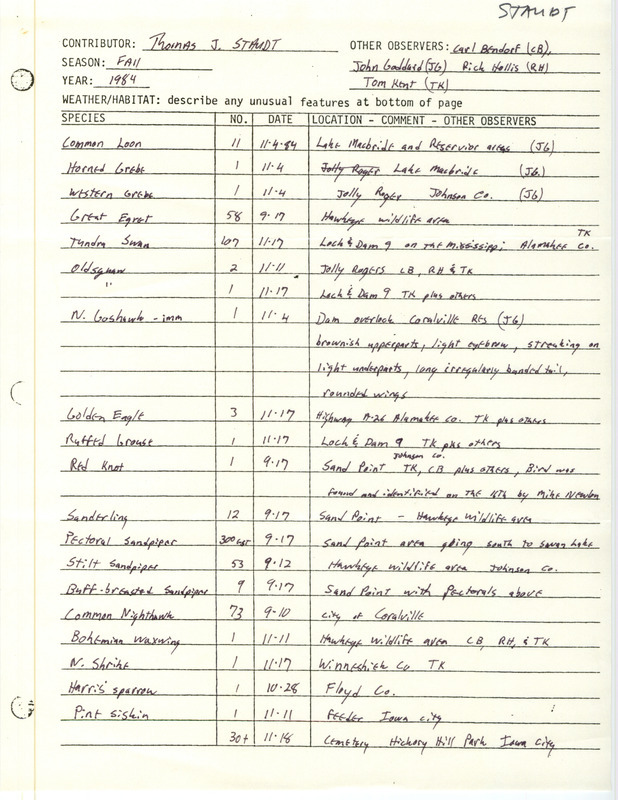 STAUDT
CONTRIBUTOR: Thomas J. STAUDT OTHER OBSERVERS: Carl Bendorf (CB),
SEASON: FAll John Goddard (JG) Rick Hollis (RH)
YEAR: 1984 Tom Kent (TK)
WEATHER/HABITAT: describe any unusual features at bottom of page
SPECIES NO. DATE LOCATION - COMMENT - OTHER OBSERVERS
Common Loon 11 11-4-84 Lake Macbride and Reservior areas (JG)
Horned Grebe 1 11-4 Jolly Roger Lake Macbride (JG)
Western Grebe 1 11-4 Jolly Roger Johnson Co. (JG)
Great Egret 58 9-17 Hawkeye wildlife area
TK
Tundra Swan 107 11-17 Lock & Dam 9 on the Mississippi Alamakee Co.
Oldsquaw 2 11-11 Jolly Rogers CB, RH & TK
" 1 11-17 Lock & Dam 9 TK plus others
N. Goshawk - imm 1 11-4 Dam overlook Coralville Res (JG)
brownish upperparts, light eyebrow, streaking on
light underparts, long irregularly banded tail,
rounded wings
Golden Eagle 3 11-17 Highway A-26 Alamakee Co. TK plus others
Ruffed Grouse 1 11-17 Lock & Dam 9 TK plus others
Johnson Co.
Red Knot 1 9-17 Sand Point TK, CB plus others, Bird was
found and identified on the 16th by Mike Newlon
Sanderling 12 9-17 Sand Point - Hawkeye Wildlife area
Pectoral Sandpiper 300 est 9-17 Sand Point area going south to Swan Lake
Stilt Sandpiper 53 9-12 Hawkeye wildlife area Johnson Co.
Buff-breasted Sandpiper 9 9-17 Sand Point with Pectorals above
Common Nighthawk 73 9-10 city of Coralville
Bohemian Waxwing 1 11-11 Hawkeye Wildlife area CB, RH, & TK
N. Shrike 1 11-17 Winneshiek Co TK
Harris' sparrow 1 10-28 Floyd Co.
Pine siskin 1 11-11 Feeder Iowa city
30+ 11-18 Cemetery Hickory Hill Park Iowa City